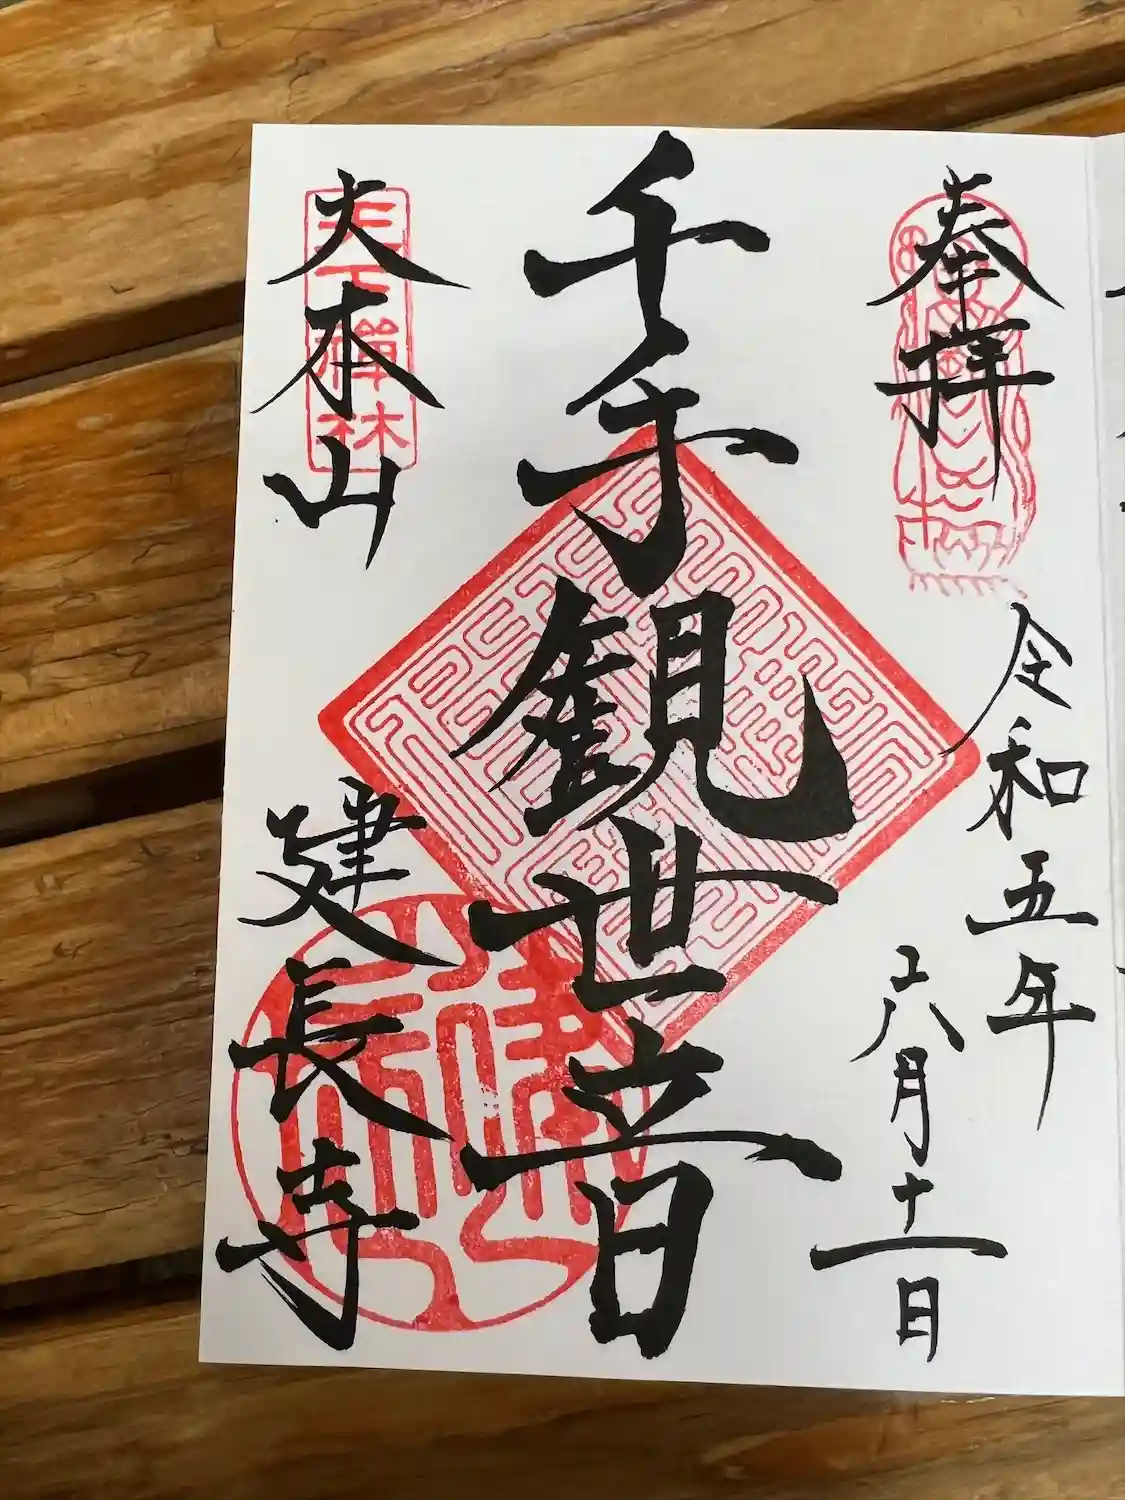 奉拝
令和五年
六月十一日
千手観世音
大本山
建長寺
天下禅林